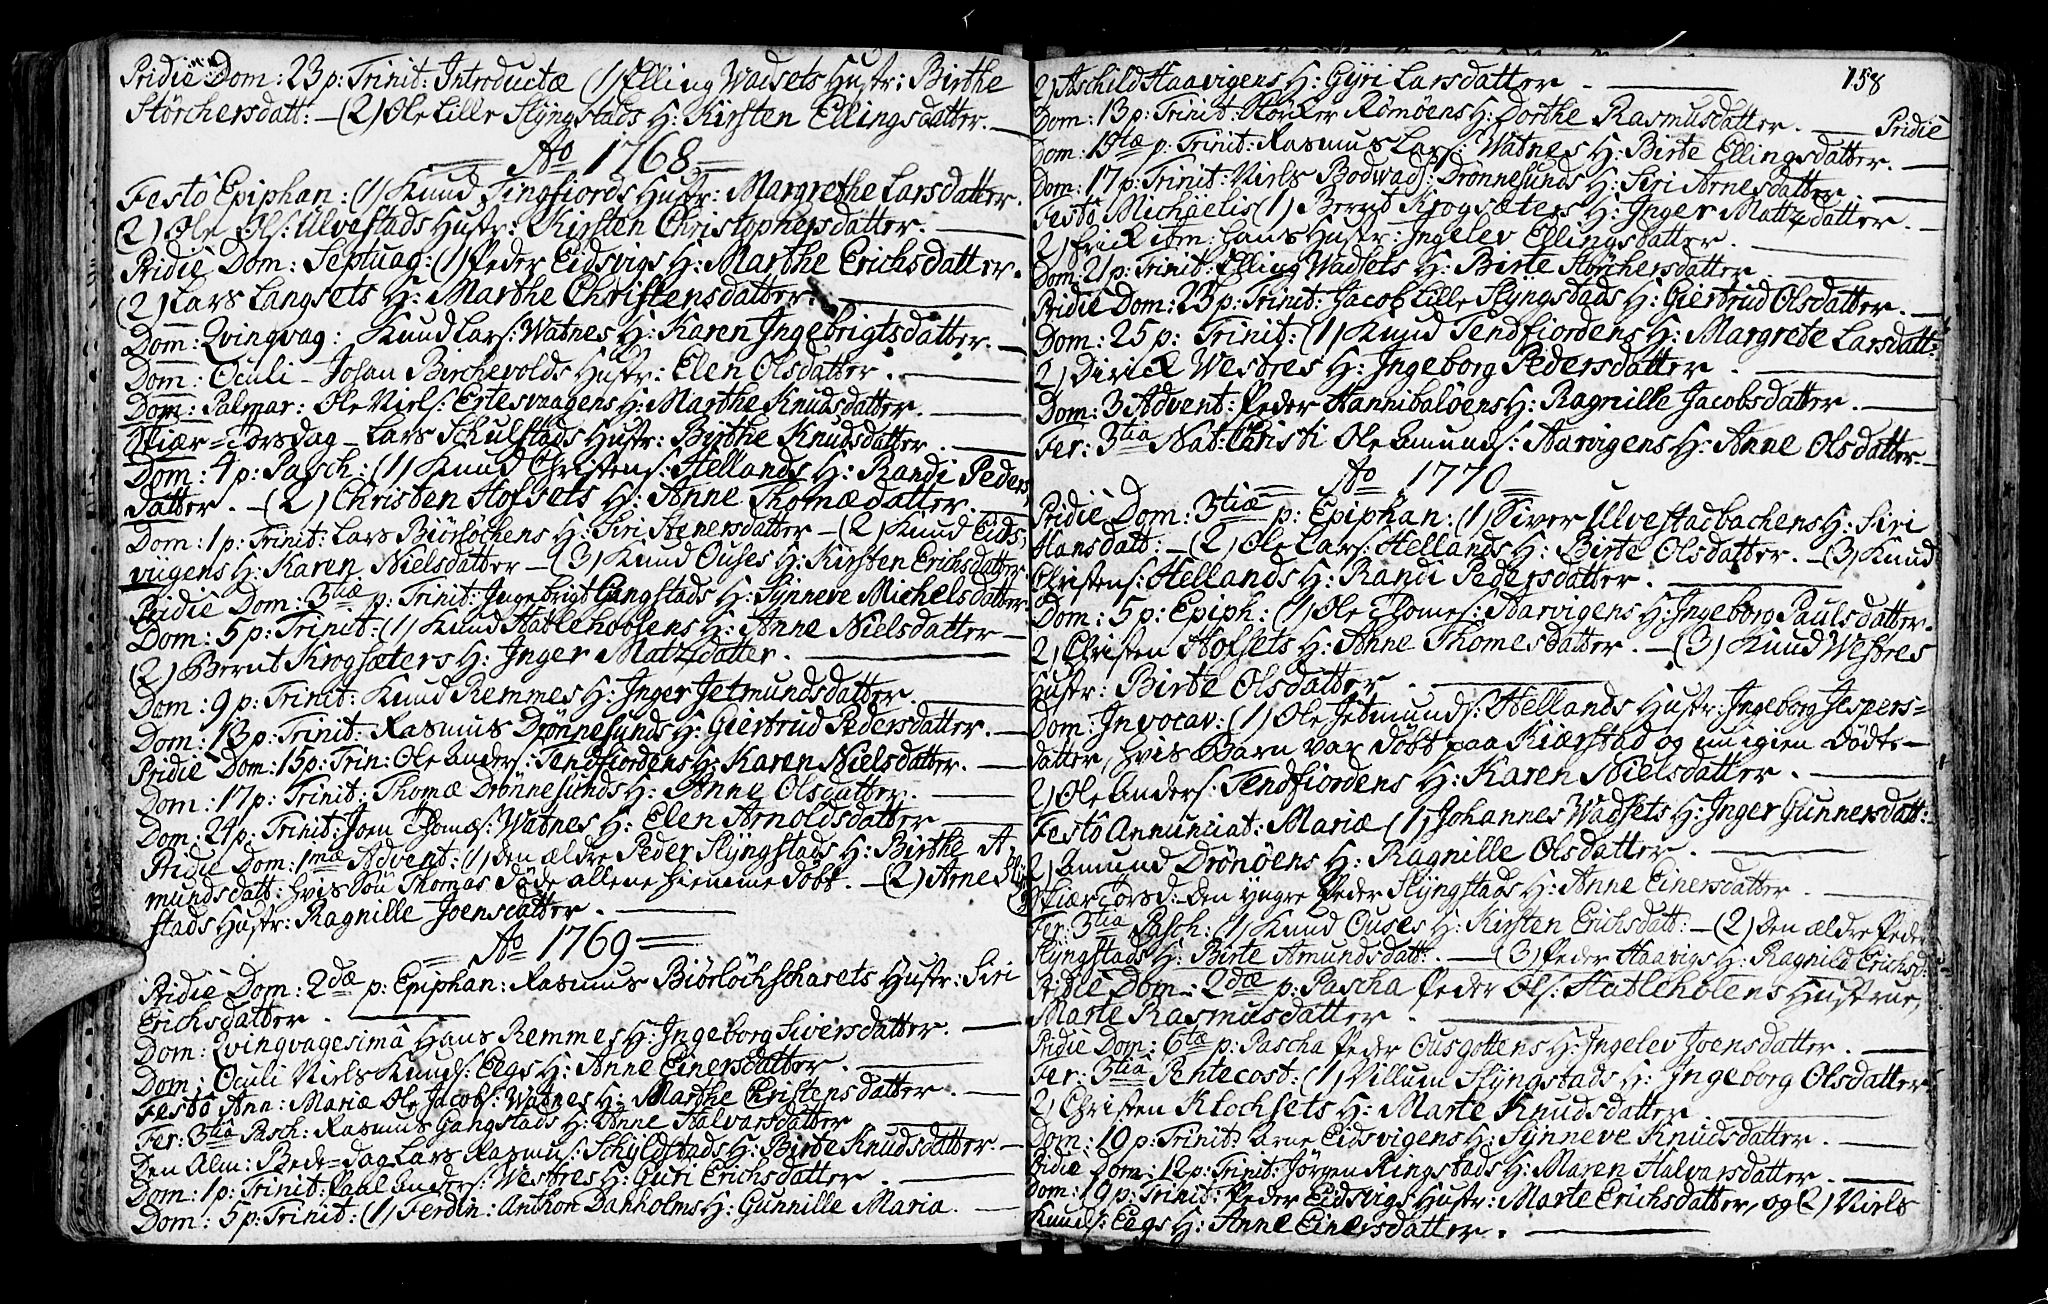 Pridie Dom: 23 p: Trinit: Introductæ (1) Elling Wadsets Hustr: Birthe
Störchersdatt: — (2) Ole Lille Slÿngstads H: Kirsten Ellingsdatter. —
Ao 1768
Festo Epiphan: (1) Knud Tingfiords Hustr: Margrethe Larsdatter.
(2) Ole Ols: Ulvestads Hustr: Kirsten Christophersdatter. —
Pridie Dom: Septuag: (1) Peder Eidsvigs H: Marthe Erichsdatter.
(2) Lars Langsets H: Marthe Christensdatter. —
Dom: Qvinqvag: Knud Lars: Watnes H: Karen Ingebrigtsdatter. —
Dom: Oculi — Johan Birchevolds Hustr: Elen Olsdatter. —
Dom: Palmar: Ole Niels: Estesvaagens H: Marthe Knudsdatter. —
Skiær=Torsdag — Lars Schulstads Hustr: Birthe Knudsdatter. —
Dom: 4 p: Pasch: (1) Knud Christens: Hellands H: Randi Peders
datter. — (2) Christen Hofsets H: Anne Thomædatter. —
Dom: 1 p: Trinit: Lars Biörlöchens H: Siri Stenersdatter — (2) Knud Eids,
viigens H: Karen Nielsdatter — (3) Knud Ouses H: Kirsten Erichsdatter
Pridie Dom: 3tiæ p: Trinit: Ingebrigt Gangstads H: Synneve Michelsdatter
Dom: 5 p: Trinit: (1) Knud Hatlehoolens H: Anne Nielsdatter —
(2) Bernt Krogsæters H: Inger Matzdatter. —
Dom: 9 p: Trinit: Knud Remmes H: Inger Jetmundsdatter. —
Dom: 13 p: Trinit: Rasmus Drönnesunds H: Giertrud Pedersdatter. —
Pridie Dom: 15 p: Trin: Ole Anders: Tendfiordens H: Karen Nielsdatter. —
Dom: 17 p: Trinit: Thomæ Drönnesunds H: Anne Olsdatter. —
Dom: 24 p: Trinit: Joen Thomæs: Watnes H: Elen Arnoldsdatter —
Pridie Dom: 1mæ Advent: (1) den ældre Peder Slÿngstads H: Birthe A,
mundsdatt: hvis Sön Thomas döde allene hiemme döbt. — (2) Arne Slÿng
stads Hustr: Ragnille Joensdatter. —
Ao 1769
Pridie Dom: 2dæ p: Epiphan: Rasmus Biörlöchscharets Hustr: Siri
Erichsdatter. —
Dom: Qvinqvagesima Hans Remmes H: Ingeborg Siversdatter. —
Dom: Oculi Niels Knuds: Eegs H: Anne Einersdatter. —
Festo Ann: Mariæ Ole Jacobs: Watnes H: Marthe Christensdatter. —
Fer: 3tia Pasch: Rasmus Gangstads H: Anne Halvarsdatter —
Den Alm: Bede=dag Lars Rasmus: Schÿldstads H: Birte Knudsdatter. —
Dom: 1 p: Trinit: Paul Anders: Westres H: Guri Erichsdatter. —
Dom: 5 p: Trinit: (1) Ferdin: Anthon Danholms H: Gunnille Maria. —
158
2) Aschild Haavigens H: Gÿri Larsdatter. —
Dom: 13 p: Trinit: Störker Römöens H: Dorthe Rasmusdatter. — Pridie
Dom: 15tæ p: Trinit: Rasmus Lars: Watnes H: Birte Ellingsdatter. —
Dom: 17 p: Trinit: Niels Bodvads: Drönnesunds H: Siri Arnesdatter. —
Festo Michaelis (1) Bernt Krogsæters H: Inger Matzdatter. —
2) Erick Hustr: Ingelev Ellingsdatter. —
Dom: 21 p: Trinit: Elling Wadsets H: Birte Störchersdatter. —
Pridie Dom: 23 p: Trinit: Jacob Lille Slÿngstads H: Giertrud Olsdatter. —
Dom: 25 p: Trinit: (1) Knud Tendfiordens H: Margrete Larsdatt:
2) Dirick Westres H: Ingeborg Pedersdatter. —
Dom: 3 Advent: Peder Hannibalöens H: Ragnille Jacobsdatter. —
Fer: 3tia Nat: Christi Ole Amunds: Aarvigens H: Anne Olsdatter —
Ao 1770
Pridie Dom: 3tiæ p: Epiphan: (1) Siver Ulvestadbachens H: Siri
Hansdatt: — (2) Ole Lars: Hellands H: Birte Olsdatter. — (3) Knud
Christens: Hellands H: Randi Pedersdatter. —
Dom: 5 p: Epiph: (1) Ole Thomes: Aarvigens H: Ingeborg Paulsdatter.
2) Christen Hofsets H: Anne Thomesdatter. — (3) Knud Westres
Hustr: Birte Olsdatter. —
Dom: Invocav: (1) Ole Jetmunds: Hellands Hustr: Ingeborg Jespers=
datter, hvis Barn var döbt paa Kiærstad og nu igien döde —
2) Ole Anders: Tendfiordens H: Karen Nielsdatter. —
Festo Annunciat: Mariæ (1) Johannes Wadsets H: Inger Gunnersdatt:
2) Amund Drönöens H: Ragnille Olsdatter. —
Skiær Torsd: den yngre Peder Slÿngstads H: Anne Einersdatter. —
Fer: 3tia Pasch: (1) Knud Ouses H: Kirsten Erichsdatt: — (2) Den ældre Peder
Slÿngstads H: Birte Amundsdatt: — (3) Peder Haavigs H: Ragnild Erichsd:
Pridie Dom: 2dæ p: Pascha Peder Ols: Hatleholens Hustrue,
Marte Rasmusdatter. —
Pridie Dom: 6tæ p: Pascha Peder Ousgottens H: Ingelev Joensdatter. —
Fer: 3tia Pentecost: (1) Villum Slÿngstads H: Ingeborg Olsdatter
2) Christen Klochsets H: Marte Knudsdatter. —
Dom: 10 p: Trinit: Arne Eidsvigens H: Sÿnneve Knudsdatter. —
Pridie Dom: 12 p: Trinit: Jörgen Ringstads H: Maren Halvarsdatter. —
Dom: 19 p: Trinit: Peder Eidsvigs Hustr: Marte Erichsdatter, og (2) Niels
Knuds: Eegs H: Anne Einersdatter. —